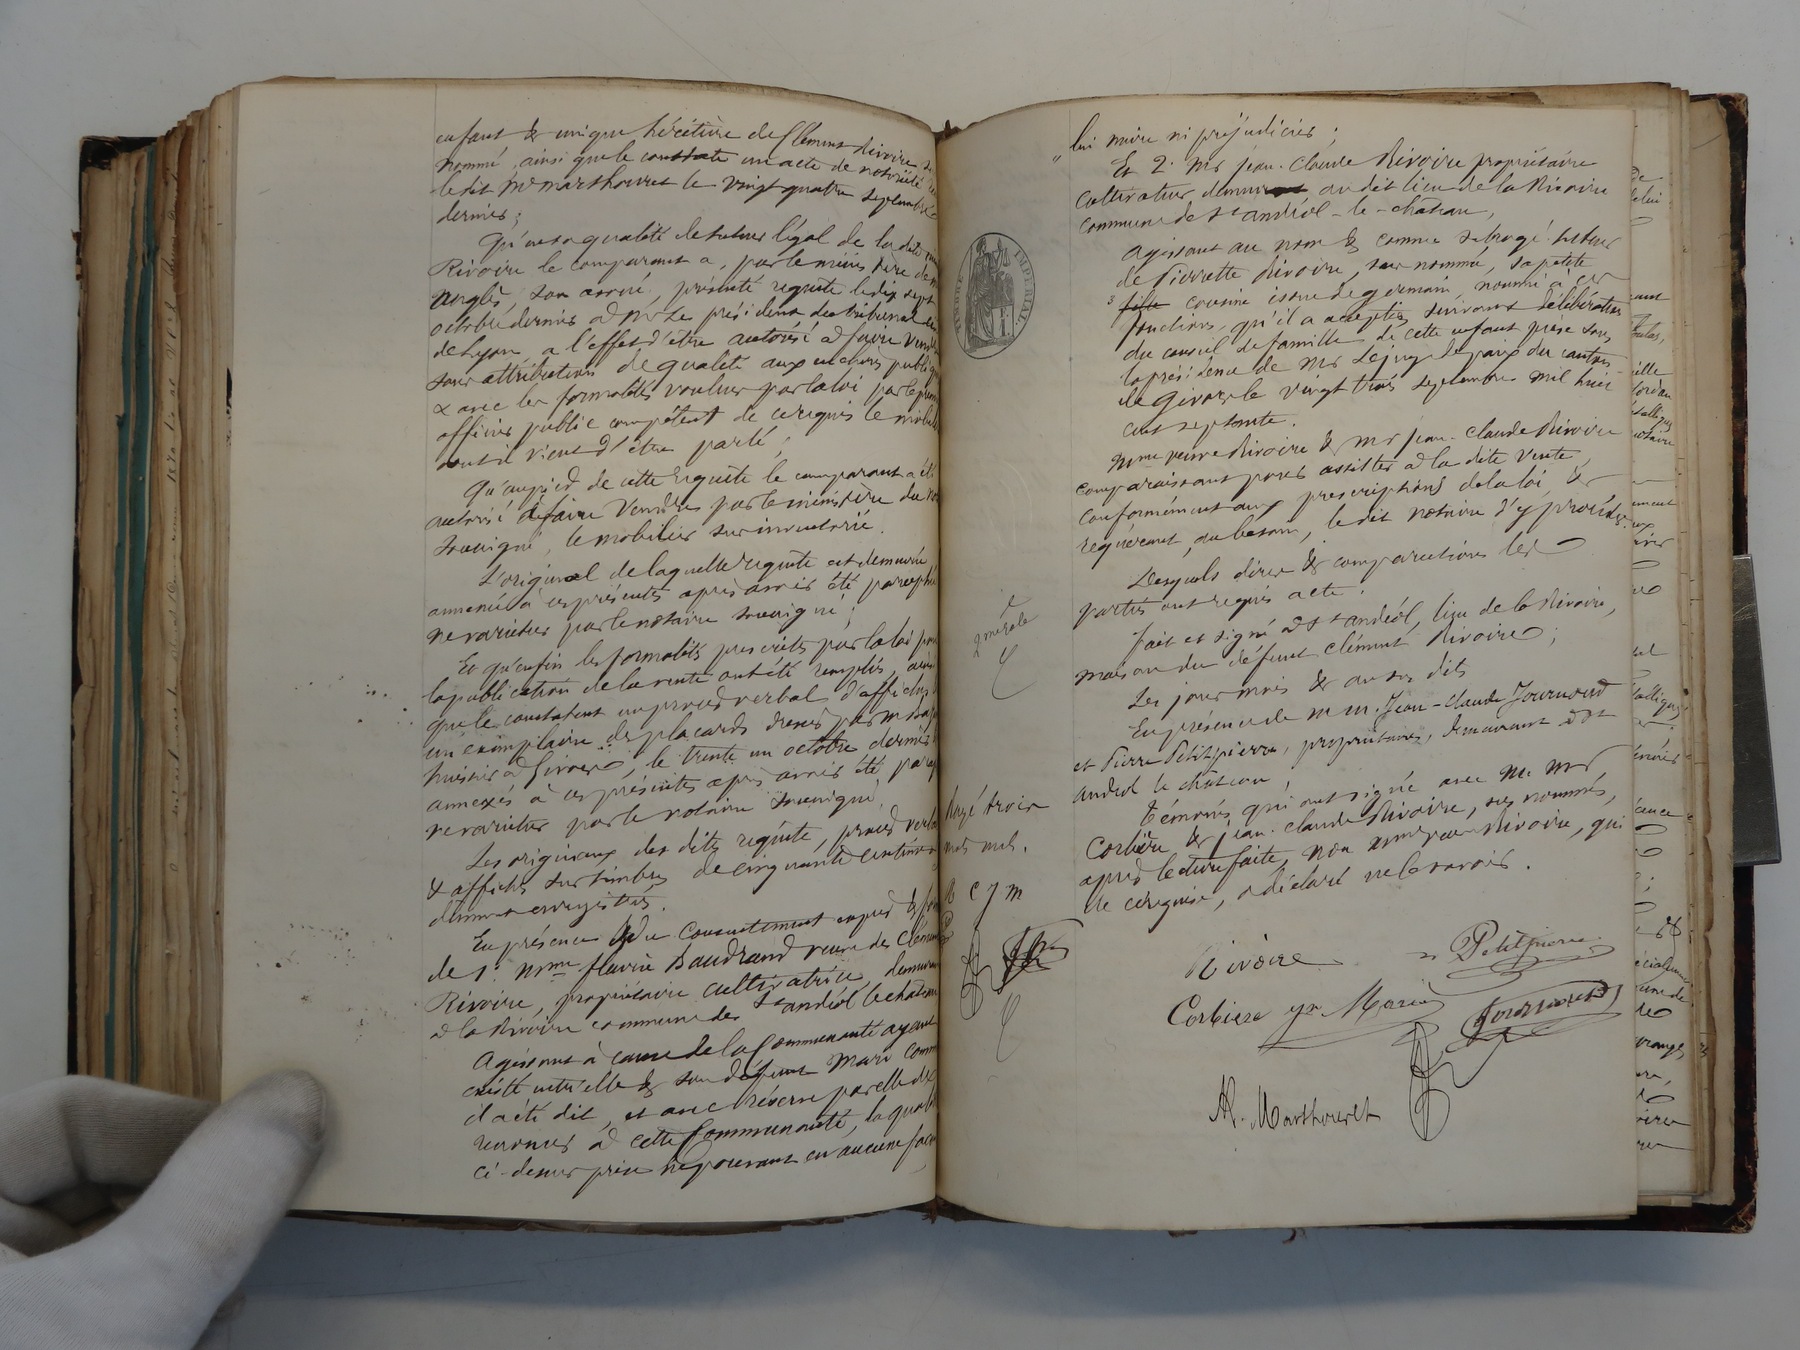 enfant & unique héritière de Clément Rivoire
nommé, ainsi que le constate un acte de notoriété
le dit Me Marthouret le vingt quatre septembre
dernier;
Qu'en sa qualité de tuteur légal de la dite
Rivoire le comparant a, par le ministère de
son avoué, présenté requête le dix sept
octobre dernier à Mr Le président du tribunal
de Lyon, a l'effet d'être autorisé à faire vendre
sans attribution de qualité aux enchères publiques
& avec les formalités voulues par la loi par le
officier public compétent de ce requis le mobilier
dont il vient d'être parlé;
Qu'au pied de cette requête le comparant a été
autorisé à faire vendre par le ministère du
soussigné, le mobilier sus inventorié.
L'original de laquelle requête est demeuré
annexé à ces présentes après avoir été paraphé
ne varietur par le notaire soussigné;
Et qu'enfin les formalités prescrites par la loi pour
la publication de la vente ont été remplies, ainsi
que le constatent un procès verbal d'affiches
un exemplaire des placards dressé par m
huissier à Givors, le trente un octobre dernier
annexés à ces présentes après avoir été
ne varietur par le notaire soussigné,
Les originaux des dits requête, procès verbal
& affiches sur timbres de cinquante centimes
dûment enregistrés.
En présence & du consentement exprès &
de 1° Mme flavie Baudrand veuve de Clément
Rivoire, propriétaire cultivatrice, demeurant
à la Rivoire commune de St andéol le château
Agissant à cause de la Communauté ayant
existé entre elle & son défunt mari comme
il a été dit, et avec réserve par elle de
renoncer à cette Communauté, la qualité
ci-dessus prise ne pouvant en aucune façon
lui nuire ni préjudicier;
Et 2° Mr jean-Claude Rivoire propriétaire
cultivateur demeurant au dit lieu de la Rivoire
commune de St andéol-le-château,
TIMBRE IMPERIAL
agissant au nom & comme subrogé tuteur
de Pierrette Rivoire, sus nommée, sa petite
fille cousine issue de germain, nommé à ces
fonctions, qu'il a acceptées suivant délibération
du conseil de famille de cette enfant prise sous
la présidence de Mr Le juge de paix du canton
de Givors le vingt trois septembre mil huit
cent septante.
Mme veuve Rivoire & mr jean-Claude Rivoire
comparaissant pour assister à la dite vente,
conformément aux prescriptions de la loi, &
requérant, au besoin, le dit notaire d'y procéder.
Desquels dires & comparutions les
parties ont requis acte.
2me rôle
fait et signé à St andéol, lieu de la Rivoire,
maison du défunt Clément Rivoire;
Les jour mois & an sus dits
En présence de m m. Jean-Claude Journoud
et Pierre Petitpierre, propriétaires, demeurant à St
andéol le château;
Témoins qui ont signé avec Me Mrs
Corbière & jean-Claude Rivoire, sus nommés,
après lecture faite, non mme veuve Rivoire, qui
de ce requise, a déclaré ne le savoir.
Rayé trois
mots nuls.
R C J M
Rivoire
Petitpierre
Corbière
Journoud
M. Marthouret